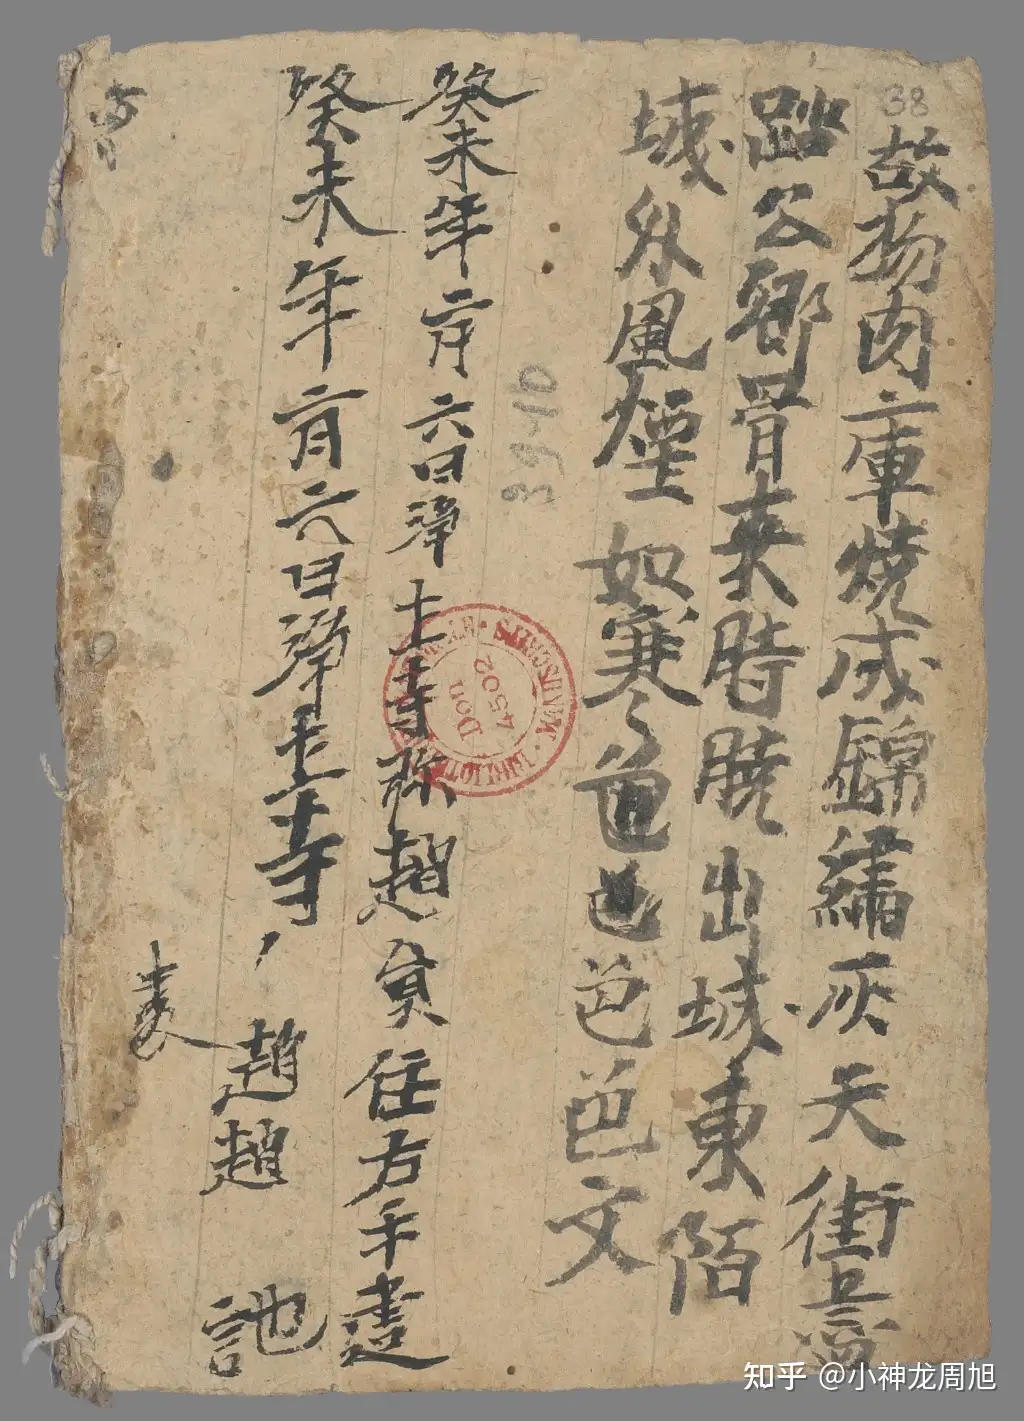 故揚肉庫燒成錦繡灰天街盡
踏公卿骨來時曉出城東陌
城外風煙如寒色色芭芭文
癸未年二月六日淨土寺弥趙員住右手書
癸未年二月六日淨土寺、趙趙訑
38
39-10
BIBLIOTHÈQUE MANUSCRITS
Don
4502
知乎 @小神龙周旭